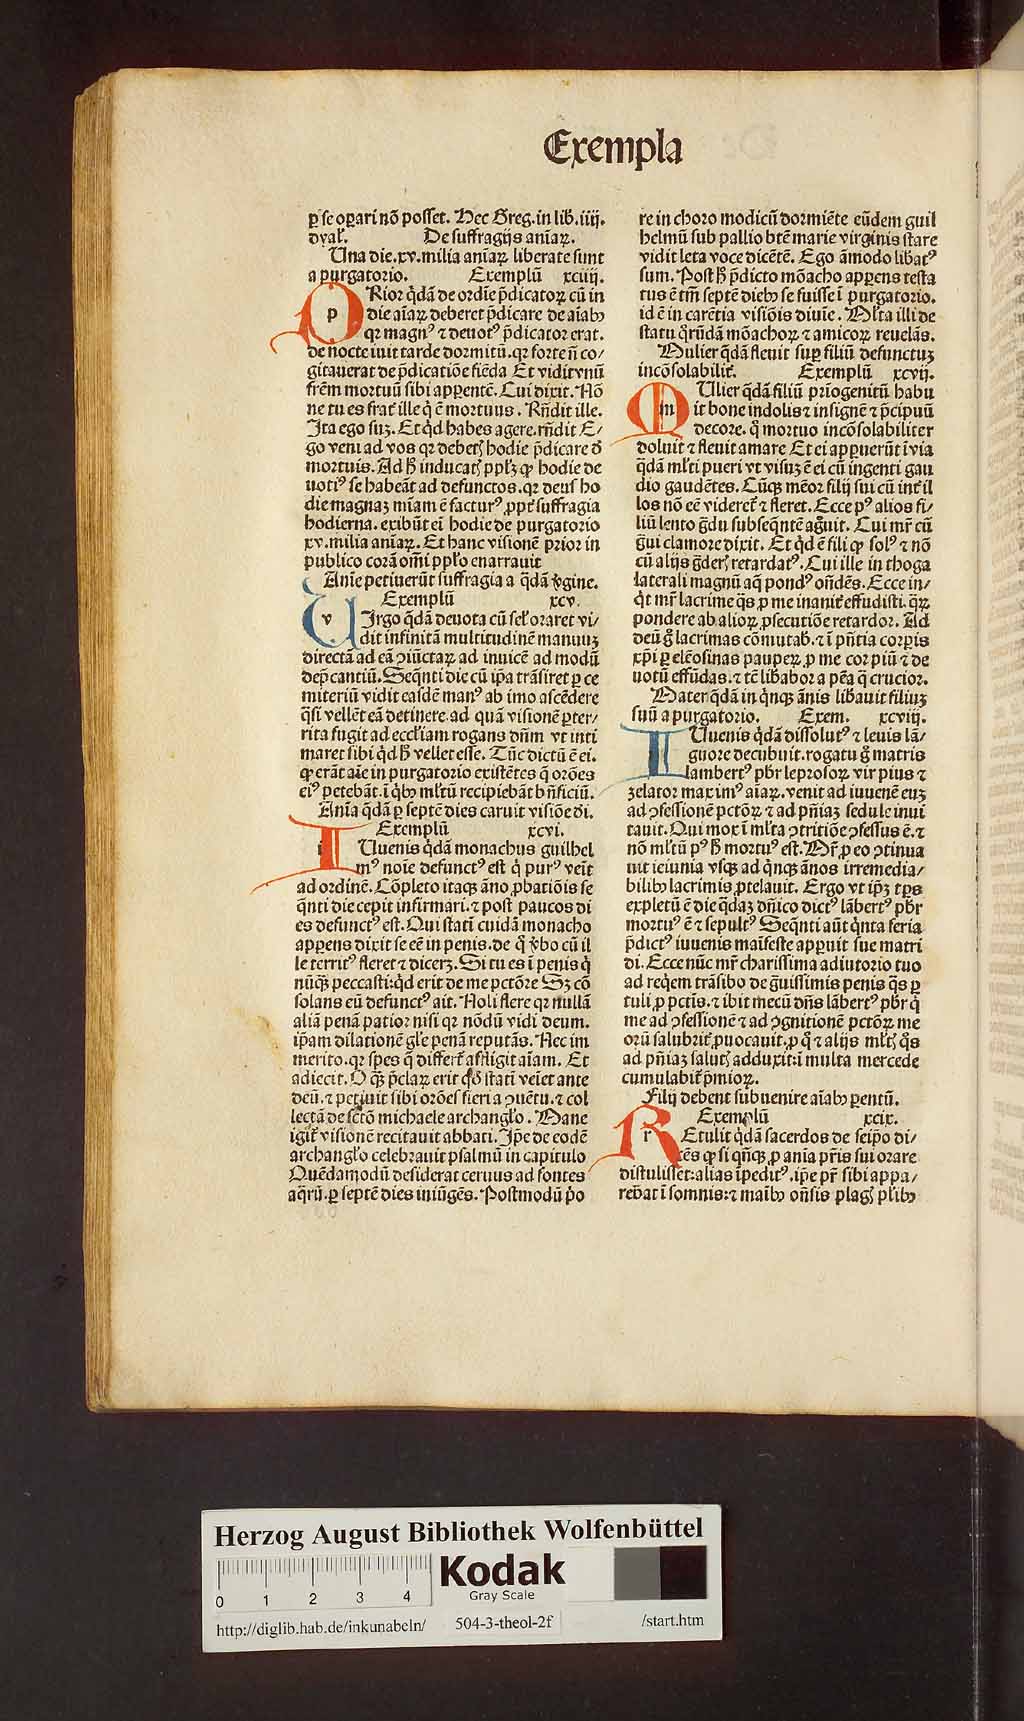 Exempla
ꝑ se oꝑari nō posset. Hec Greg. in lib. iiij.
dyal. De suffragijs aniaꝝ.
Una die .xv. milia aniaꝝ liberate sunt
a purgatorio. Exemplū xciiij.
PRior q̄dā de ordīe p̄dicatoꝝ cū in
die aīaꝝ deberet p̄dicare de aīabꝰ
qꝛ magnꝰ ⁊ deuotꝰ p̄dicator erat.
de nocte iuit tarde dormitū. qꝛ forte n̄ co/
gitauerat de p̄dicatiōe fiēda Et vidit vnū
fr̄em mortuū sibi apꝑentē. Cui dixit. Nō
ne tu es frat̄ ille q̇ ē mortuus. Rn̄dit ille.
Ita ego suꝫ. Et q̇d habes agere. rn̄dit E/
go veni ad vos qꝛ debetꝭ hodie p̄dicare ð
mortuis. Ad h̄ inducatꝭ ppl̄ꝫ ꝙ hodie de
uotiꝰ se habeāt ad defunctos. qꝛ deus ho
die magnaꝫ miām ē facturꝰ ꝓpt̄ suffragia
hodierna. exibūt eī hodie de purgatorio
xv. milia aniaꝝ. Et hanc visionē prior in
publico corā om̄i ppl̄o enarrauit
Anīe petiuerūt suffragia a q̄dā v̄gine.
Exemplū xcv.
vIrgo q̄dā deuota cū sel̄ oraret vi/
dit infinitā multitudinē manuuꝫ
directā ad eā ꝯiūctaꝝ ad inuicē ad modū
dep̄cantiū. Seq̄nti die cū ip̄a trāsiret ꝑ ce
miteriū vidit easdē manꝰ ab imo ascēdere
q̄si vellēt eā detinere. ad quā visionē ꝑter/
rita fugit ad eccl̄iam rogans dn̄m vt inti
maret sibi q̇d h̄ vellet esse. Tūc dictū ē ei.
ꝙ erāt aīe in purgatorio existētes q̄ orōes
eiꝰ petebāt. ī q̇bꝰ ml̄tū recipiebāt bn̄ficiū.
Anīa q̄dā ꝑ septē dies caruit visiōe di.
Exemplū xcvi.
iUuenis q̄dā monachus guilhel
mꝰ noīe defunctꝰ est q̇ purꝰ veīt
ad ordinē. Cōpleto itaqꝫ āno ꝓbatiōis se
q̄nti die cepit infirmari. ⁊ post paucos di
es defunctꝰ est. Qui statī cuidā monacho
apꝑens dixit se eē in penis. de q̇ v̄bo cū il
le territꝰ fleret ⁊ dicerꝫ. Si tu es ī penis q̇
nūqꝫ peccasti: q̇d erit de me pctōre Sꝫ cō
solans eū defunctꝰ ait. Noli flere qꝛ nullā
aliā penā patior nisi qꝛ nōdū vidi deum.
ip̄am dilationē gl̄e penā reputās. Nec im
merito. qꝛ spes q̄ differt̄ affligit aīam. Et
adiecit. O q̄ꝫ p̄claꝝ erit qn̄ statī veīet ante
deū. ⁊ petiuit sibi orōes fieri a ꝯuētu. ⁊ col
lectā de sctō michaele archangl̄o. Mane
igit̄ visionē recitauit abbati. Ip̄e de eodē
archangl̄o celebrauit psalmū in capitulo
Quēdamodū desiderat ceruus ad fontes
aq̄rū. ꝑ septē dies iniūgēs. Postmodū p̄o
re in choro modicū dormiēte eūdem guil
helmū sub pallio btē marie virginis stare
vidit leta voce dicētē. Ego āmodo libatꝰ
sum. Post h̄ p̄dicto mōacho apꝑens testa
tus ē tm̄ septē diebꝰ se fuisse ī purgatorio.
id ē in carētia visiōis diuīe. Ml̄ta illi de
statu q̄rūdā mōachoꝝ ⁊ amicoꝝ reuelās.
Mulier q̄dā fleuit suꝑ filiū defunctuꝫ
incōsolabilit̄. Exemplū xcvij.
mUlier q̄dā filiū prīogenitū habu
it bone indolis ⁊ insignē ⁊ p̄cipuū
decore. q̄ mortuo incōsolabiliter
doluit ⁊ fleuit amare Et ei apꝑuerūt ī via
q̄dā ml̄ti pueri vt visuꝫ ē ei cū ingenti gau
dio gaudētes. Cūqꝫ mēor filij sui cū int̄ il
los nō eē videret̄ ⁊ fleret. Ecce pꝰ alios fi/
liū lento g̊du subseq̄ntē ag̊uit. Cui mr̄ cū
g̊ui clamore dixit. Et q̇d ē fili ꝙ solꝰ ⁊ nō
cū alijs g̊derꝭ retardatꝰ. Cui ille in thoga
laterali magnū aq̄ pondꝰ on̄dēs. Ecce in/
q̇t mr̄ lacrime q̄s ꝓ me inanit̄ effudisti. q̄ꝝ
pondere ab alioꝝ ꝓsecutiōe retardor. Ad
deū g̊ lacrimas cōmutab. ⁊ ī pn̄tia corꝑis
xp̄i ꝑ elēosinas pauꝑeꝝ ꝓ me cor piū ⁊ de
uotū effūdas. ⁊ tē libabor a pēa q̄ crucior.
Mater q̄dā in q̇nqꝫ ānis libauit filiuꝫ
suū a purgatorio. Exem. xcviij.
IUuenis q̄dā dissolutꝰ ⁊ leuis lā/
guore decubuit. rogatu g̊ matris
lambertꝰ pbr̄ leprosoꝝ vir pius ⁊
zelator maximꝰ aīaꝝ. venit ad iuuenē euꝫ
ad ꝯfessionē pctōꝝ ⁊ ad pn̄iaꝫ sedule inui
tauit. Qui mox ī ml̄ta ꝯtritiōe ꝯfessus ē. ⁊
nō ml̄tū pꝰ h̄ mortuꝰ est. Mr̄ ꝓ eo ꝯtinua
uit ieiunia vsqꝫ ad q̇nqꝫ ānos irremedia/
bilibꝰ lacrimis ꝓtelauit. Ergo vt ip̄ꝫ tꝑs
expletū ē die q̄daꝫ dn̄ico dictꝰ lābertꝰ pbr̄
mortuꝰ ē ⁊ sepultꝰ Seq̄nti aūt q̇nta feria
p̄dictꝰ iuuenis maīfeste apꝑuit sue matri
di. Ecce nūc mr̄ charissima adiutorio tuo
ad req̇em trāsibo de g̊uissimis penis q̄s ꝑ
tuli ꝓ pctīs. ⁊ ibit mecū dn̄s lābertꝰ pbr̄ q̇
me ad ꝯfessionē ⁊ ad ꝯgnitionē pctōꝝ me
orū salubrit̄ ꝓuocauit. ꝓ q̇ ⁊ alijs ml̄tꝭ q̇s
ad pn̄iaꝫ salutꝭ adduxit: ī multa mercede
cumulabit̄ p̄mioꝝ.
Filij debent subuenire aīabꝰ ꝑentū.
Exemplū xcix.
rEtulit q̄dā sacerdos de seip̄o di/
cēs ꝙ si qn̄qꝫ ꝓ ania pr̄is sui orare
distulisset: alias īpeditꝰ. ip̄e pr̄ sibi appa/
rebat ī somnis: ⁊ maībꝰ on̄sis plagꝭ pl̄ibꝰ
Herzog August Bibliothek Wolfenbüttel
0 1 2 3 4
Kodak
Gray Scale
http://diglib.hab.de/inkunabeln/ 504-3-theol-2f /start.htm